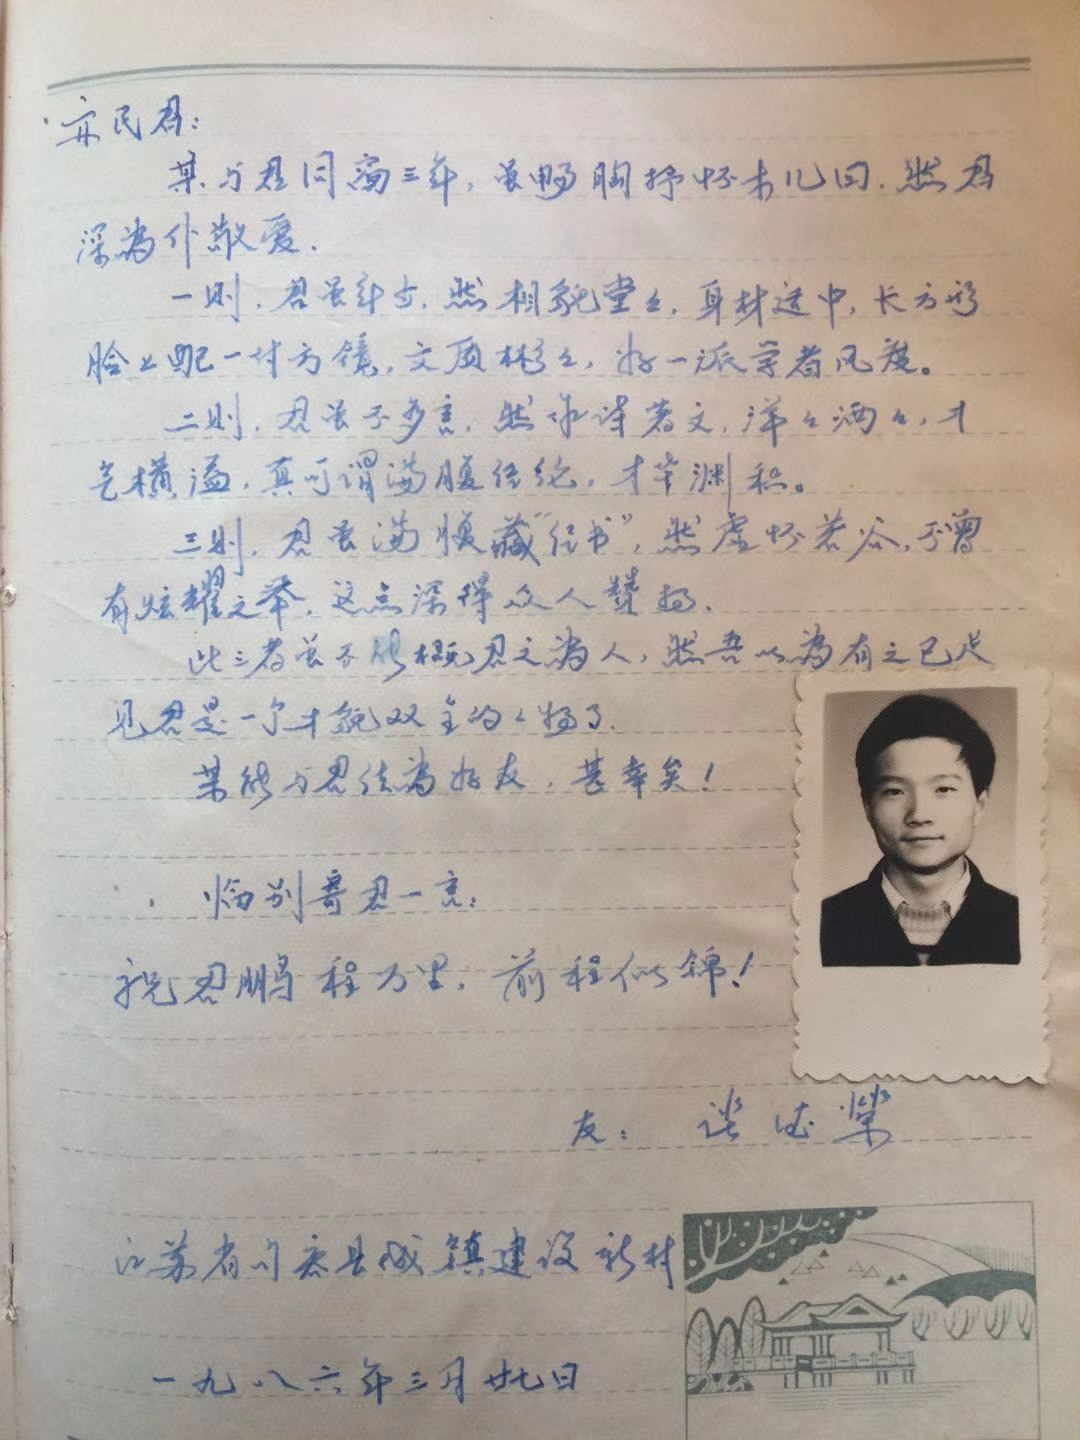 亦民君：
某与君同窗三年，虽畅胸抒怀未几回，然君
深为仆敬爱．
一则，君虽年方，然相貌堂々，身材适中，长方形
脸上配一付方镜，文质彬々，好一派学者风度。
二则，君虽不多言，然作诗著文，洋々洒々，才
气横溢，真可谓满腹经纶，才华渊积。
三则，君虽满腹藏“经书”，然虚怀若谷，不曾
有炫耀之举，这点深得众人赞扬．
此三者虽不能概君之为人，然吾以为有之已足
见君是一个才貌双全的人物了．
某能与君结为好友，甚幸矣！
临别寄君一言：
祝君鹏程万里，前程似锦！
友： 谈德荣
江苏省 县城镇建设新村
一九八六年三月廿七日